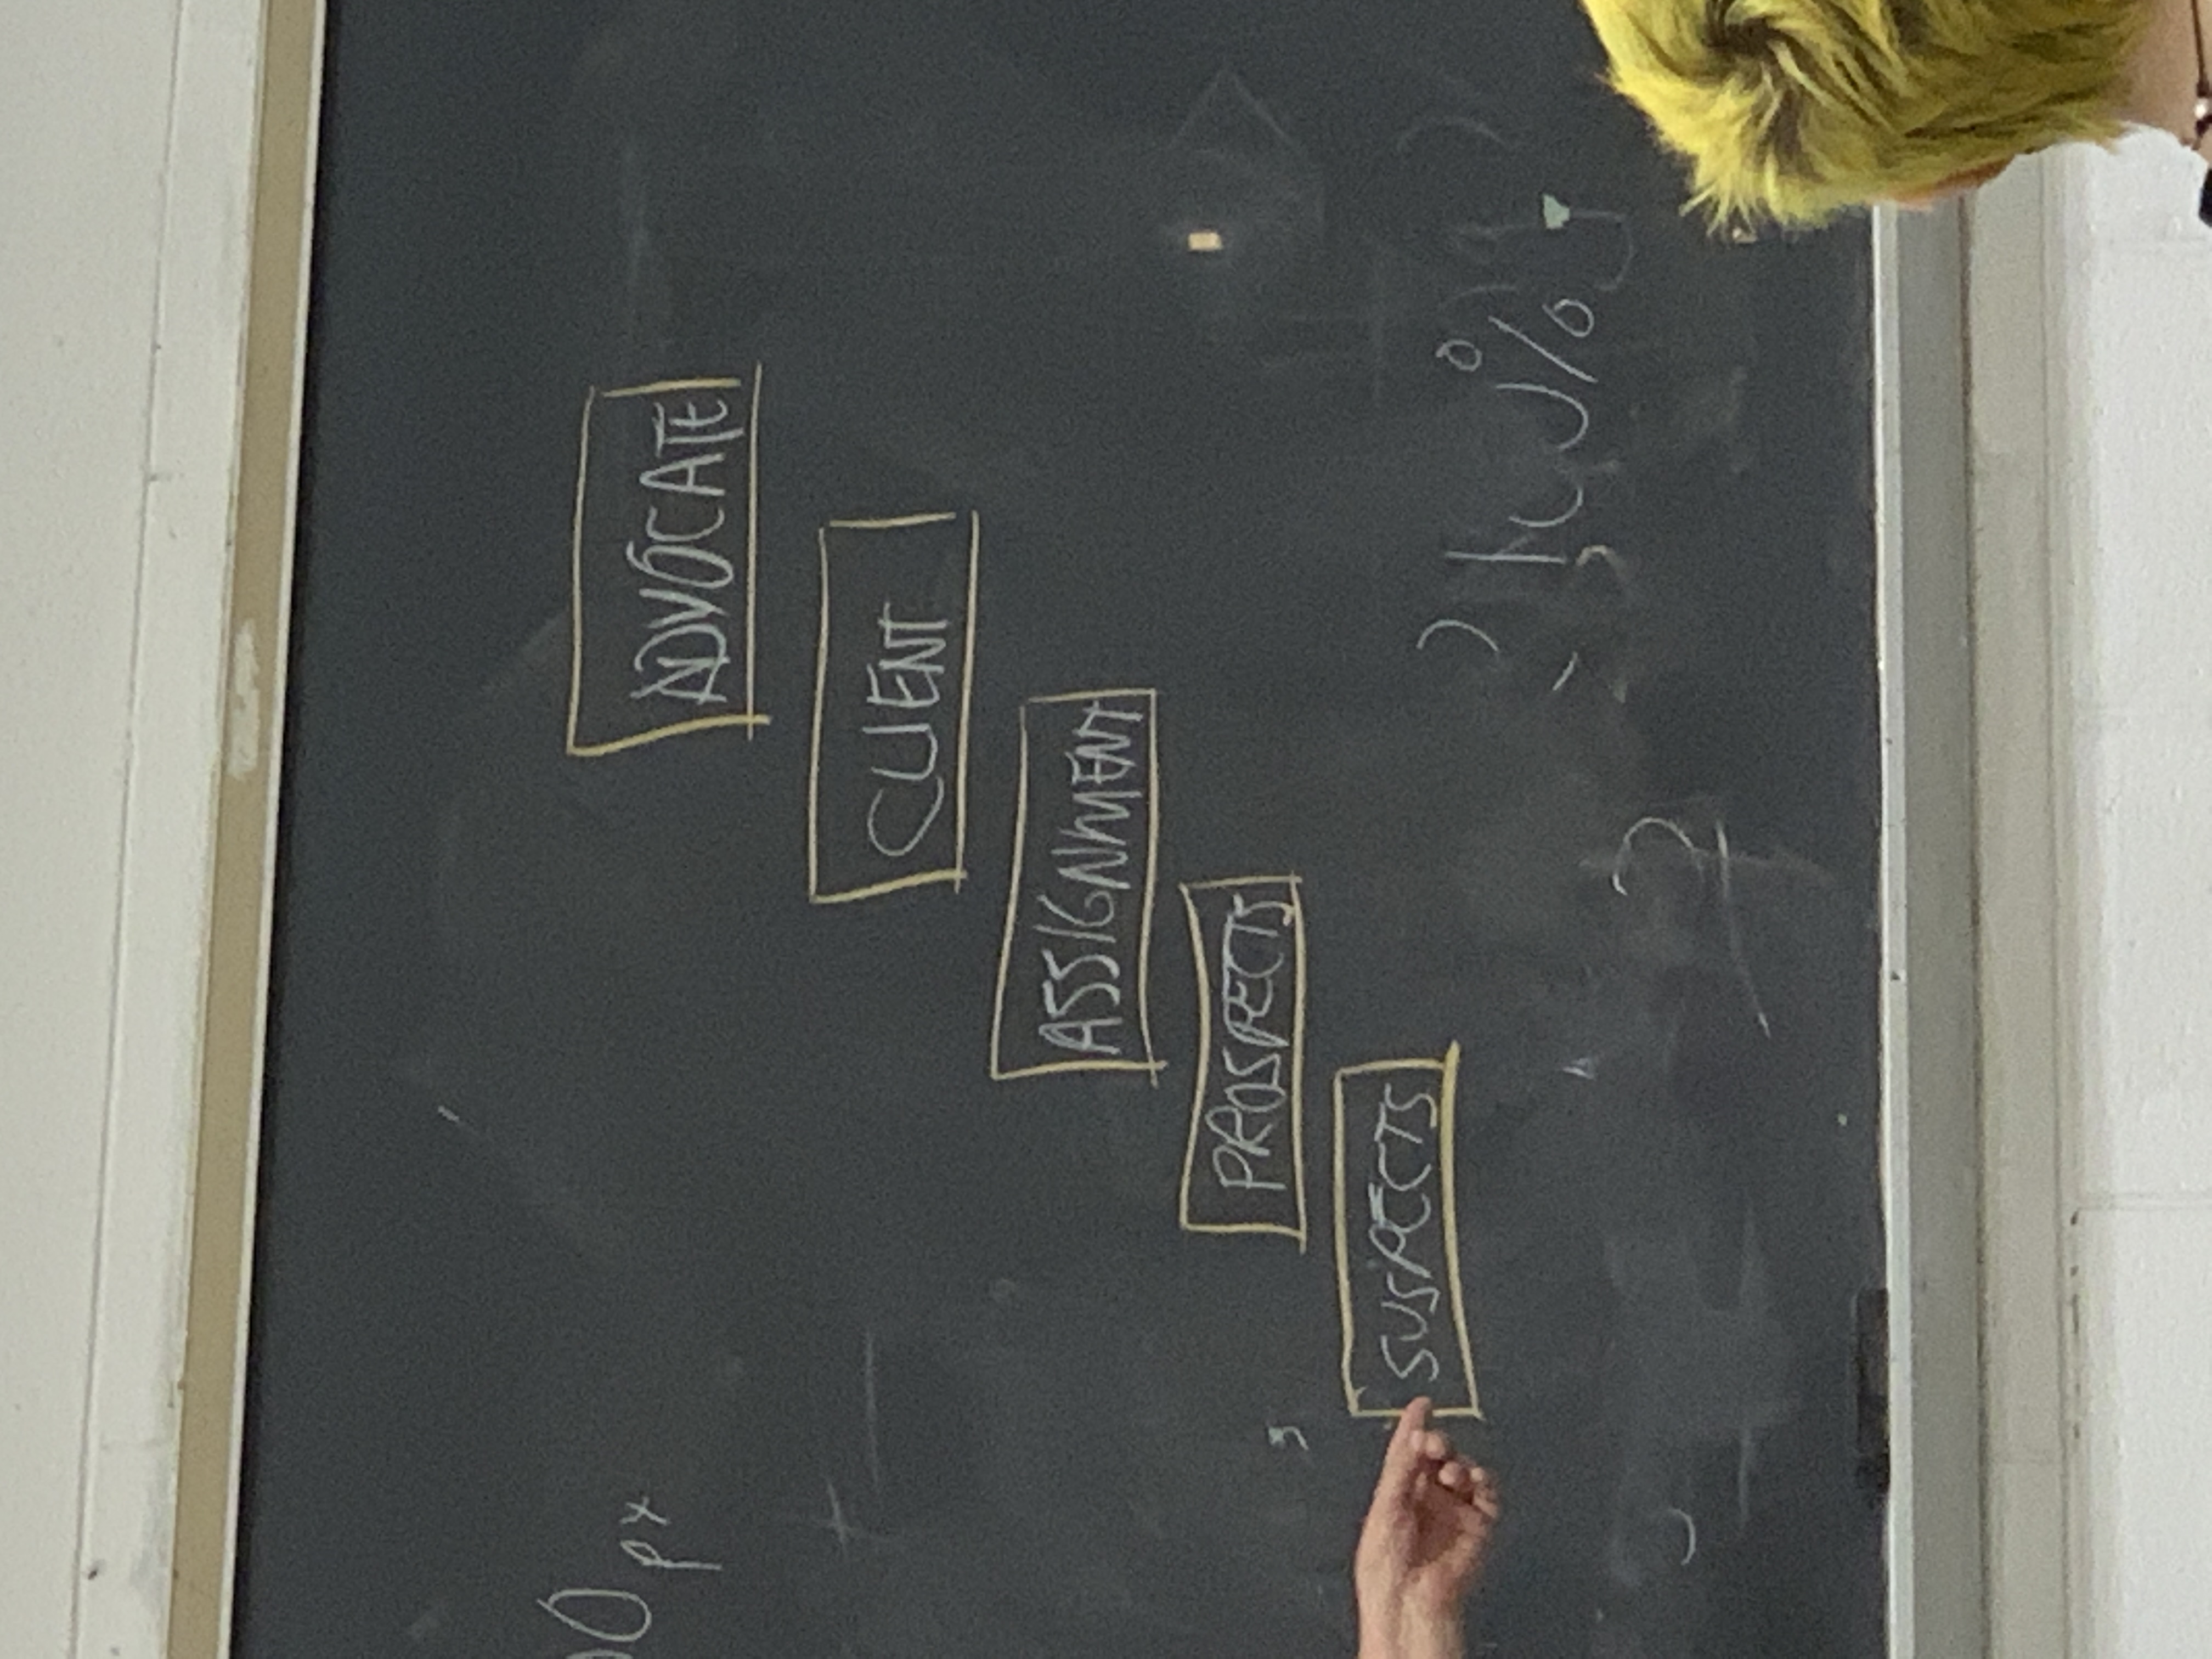 ADVOCATE
CLIENT
ASSIGNMENT
PROSPECTS
SUSPECTS
px